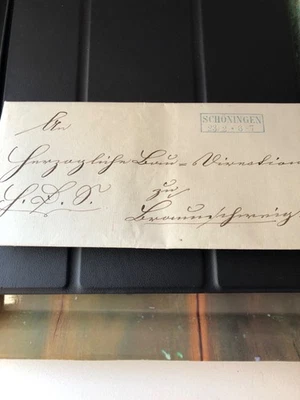 An
SCHÖNINGEN
Herzogliche Bau-Direction
H. D. S.
zu
Braunschweig